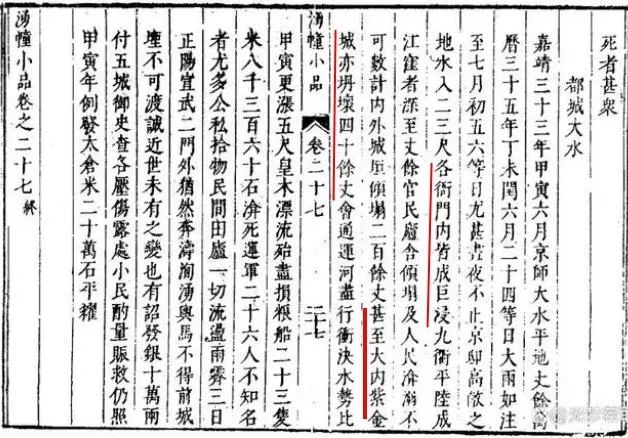 死者甚衆
都城大水
嘉靖三十三年甲寅六月京師大水平地丈餘萬
曆三十五年丁未閏六月二十四等日大雨如注
至七月初五六等日尤甚晝夜不止京邸高敞之
地水入二三尺各衙門內皆成巨浸九衢平陸成
江窪者深至丈餘官民廬舍傾塌及人民渰溺不
可數計內外城垣傾塌二百餘丈甚至大內紫金
城亦坍壞四十餘丈會通運河盡行衝決水勢比
湧幢小品 卷二十七 二十七
甲寅更漲五尺皇木漂流殆盡損粮船二十三隻
米八千三百六十石渰死運軍二十六人不知名
者尤多公私拾物民間田廬一切流蕩雨霽三日
正陽宣武二門外猶然奔濤洶湧輿馬不得前城
堙不可渡誠近世未有之變也有詔發銀十萬兩
付五城御史查各壓傷露處小民酌量賑救仍照
甲寅年例發太倉米二十萬石平糶
湧幢小品卷之二十七 終